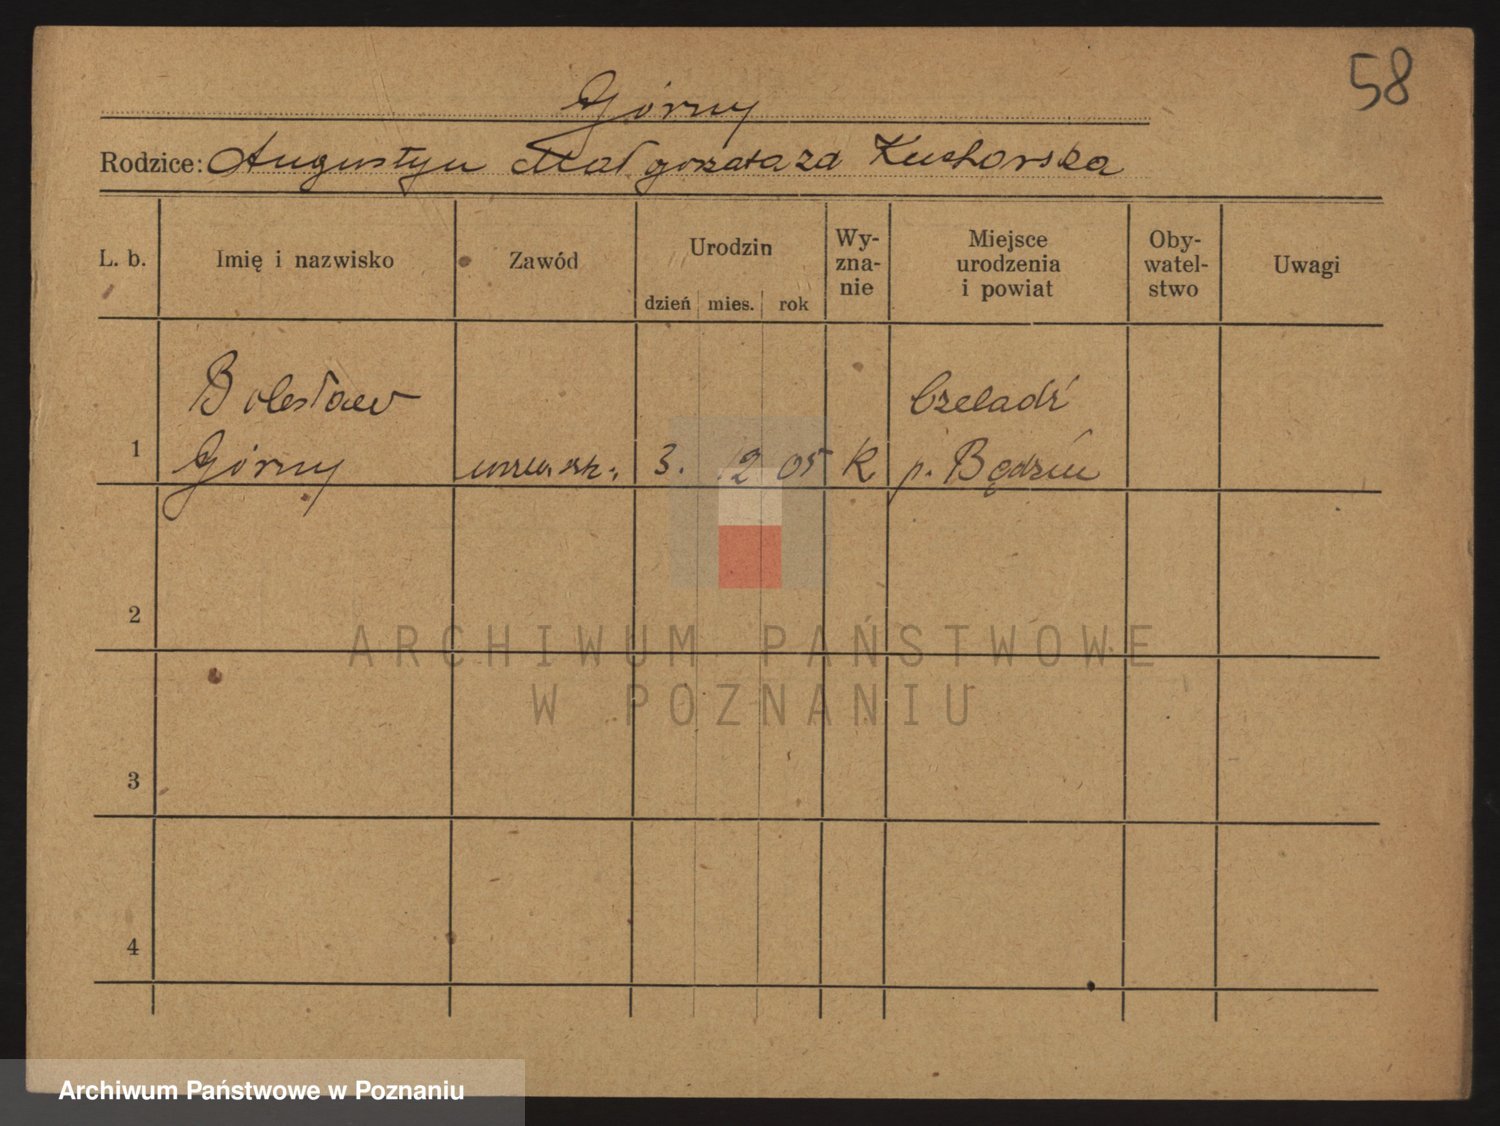 58
Górny
Rodzice: Augustyn Małgorzata zd Kucharska
L. b.
Imię i nazwisko
Zawód
Urodzin
dzień mies. rok
Wy-
zna-
nie
Miejsce
urodzenia
i powiat
Oby-
watel-
stwo
Uwagi
Bolesław
Czeladź
1 Górny 3. 12 05 K p. Będzin
2
3
4
ARCHIWUM PAŃSTWOWE
W POZNANIU
Archiwum Państwowe w Poznaniu